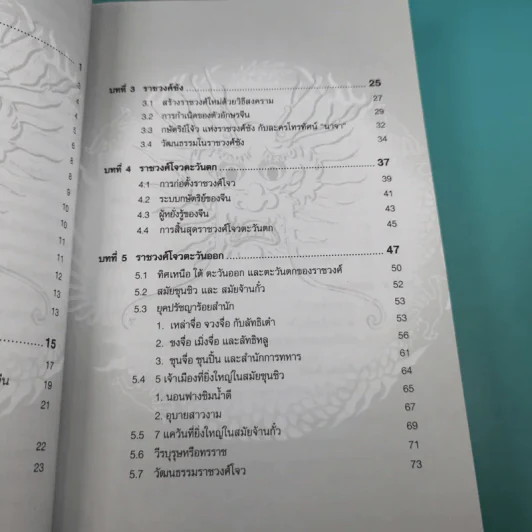 1
3
5
6
8
9
9
10
10
11
11
12
13
13
15
17
19
21
22
23
บทที่ 3 ราชวงศ์ซัง 25
3.1 สร้างราชวงศ์ใหม่ด้วยวิธีสงคราม 27
3.2 การกำเนิดของตัวอักษรจีน 29
3.3 กษัตริย์โจ้ว แห่งราชวงศ์ซัง กับละครโทรทัศน์ "นาจา" 32
3.4 วัฒนธรรมในราชวงศ์ซัง 34
บทที่ 4 ราชวงศ์โจวตะวันตก 37
4.1 การก่อตั้งราชวงศ์โจว 39
4.2 ระบบกษัตริย์ของจีน 41
4.3 ผู้หยั่งรู้ของจีน 43
4.4 การสิ้นสุดราชวงศ์โจวตะวันตก 45
บทที่ 5 ราชวงศ์โจวตะวันออก 47
5.1 ทิศเหนือ ใต้ ตะวันออก และตะวันตกของราชวงศ์ 50
5.2 สมัยชุนชิว และ สมัยจ้านกั๋ว 52
5.3 ยุคปรัชญาร้อยสำนัก 53
1. เหล่าจื่อ จวงจื่อ กับลัทธิเต๋า 53
2. ขงจื่อ เมิ่งจื่อ และลัทธิหลู 56
3. ซุนจื่อ ซุนปิ้น และสำนักการทหาร 61
5.4 5 เจ้าเมืองที่ยิ่งใหญ่ในสมัยชุนชิว 64
1. นอนฟางชิมน้ำดี 65
2. อุบายสาวงาม 67
5.5 7 แคว้นที่ยิ่งใหญ่ในสมัยจ้านกั๋ว 69
5.6 วีรบุรุษหรือทรราช 71
5.7 วัฒนธรรมราชวงศ์โจว 73